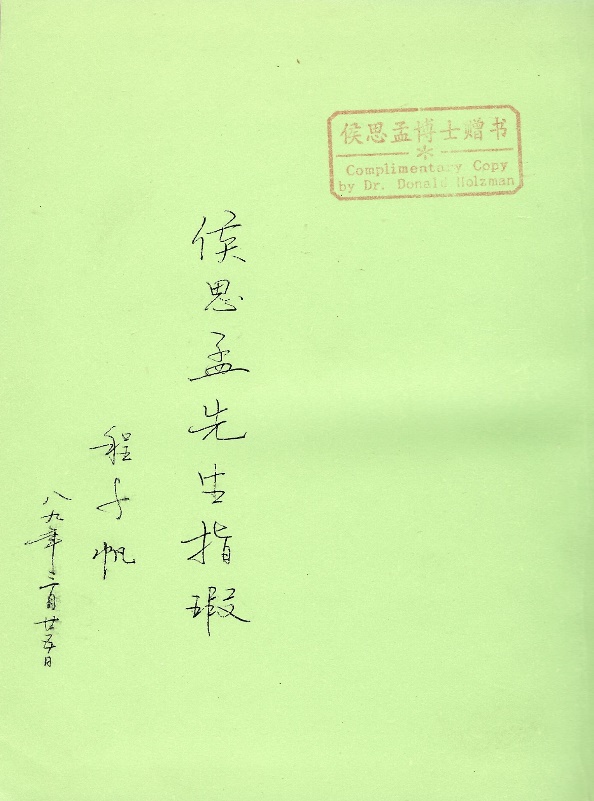 侯思孟博士赠书
Complimentary Copy
by Dr. Donald Holzman
侯思孟先生指瑕
程千帆
八九年三月廿五日